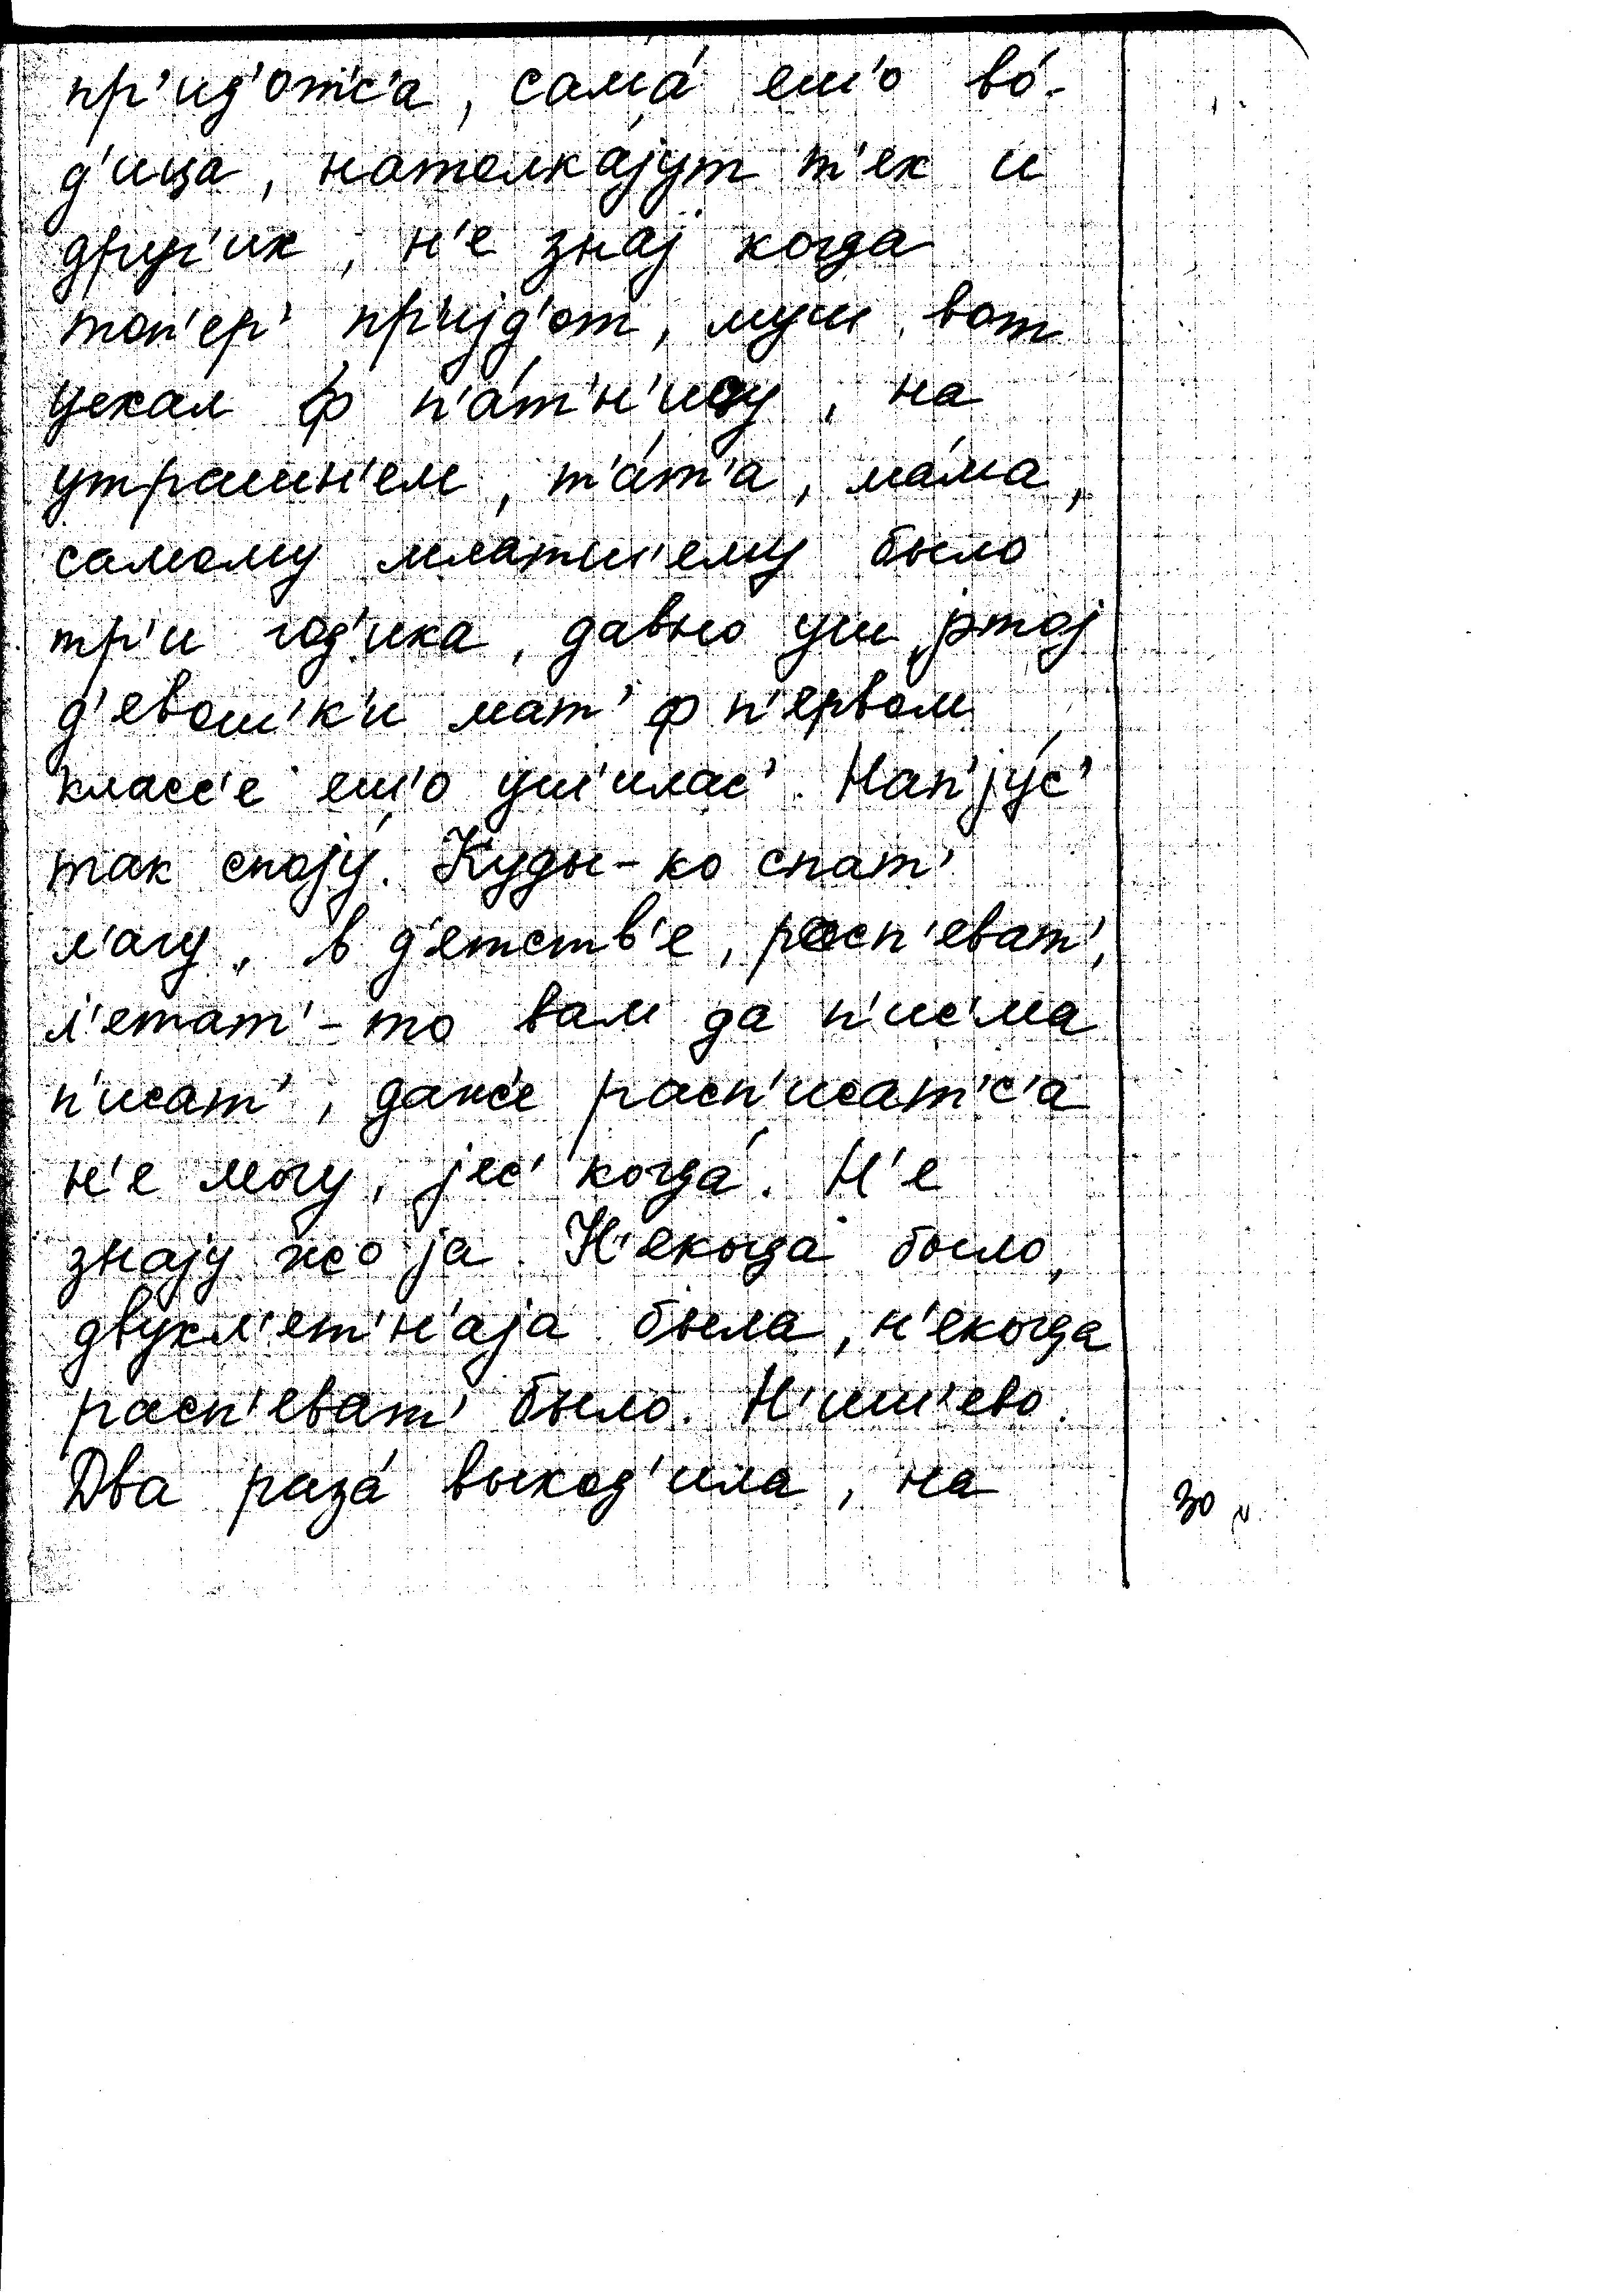 пр'ид'отс'а, сама́ еш'о во́-
д'ица, натолка́јут т'ех и
друг'их, н'е знај когда
топ'ер' пр'ијд'от, муш вот
уехал ф п'а́т'н'ицу, на
утрашн'ем, т'а́т'а, ма́ма,
самому млатш'ему было
тр'и год'ика, давно уш этој
д'евош'к'и мат' ф п'ервом
класс'е еш'о уш'илас'. Нап'ју́с'
так споју́. Куды-ко спат'
л'агу, в д'етств'е, расп'еват',
л'етат'-то вам да п'ис'ма
п'исат', даже расп'исат'с'а
н'е могу, јес' когда́. Н'е
знају жо ја. Н'екогда было,
двухл'ет'н'аја была, н'екогда
расп'еват' было. Н'иш'ево.
Два раза́ выход'ила, на
30